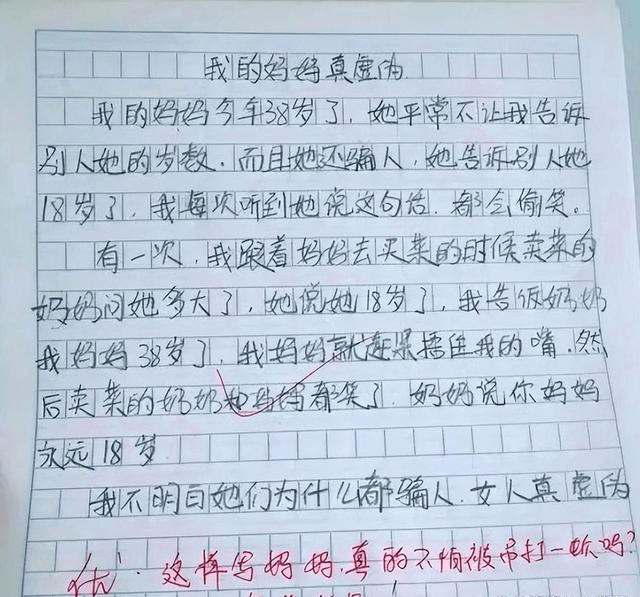 我的妈妈真虚伪
我的妈妈今年38岁了，她平常不让我告诉
别人她的岁数．而且她还骗人，她告诉别人她
18岁了，我每次听到她说这句话，都会偷笑。
有一次，我跟着妈妈去买菜的时候卖菜的
奶奶问她多大了，她说她18岁了，我告诉奶奶
我妈妈38岁了，我妈妈就赶紧捂住我的嘴．然
后卖菜的奶奶和妈妈都笑了．奶奶说你妈妈
永远18岁
我不明白她们为什么都骗人．女人真虚伪
优．这样写妈妈，真的不怕被吊打一顿吗？